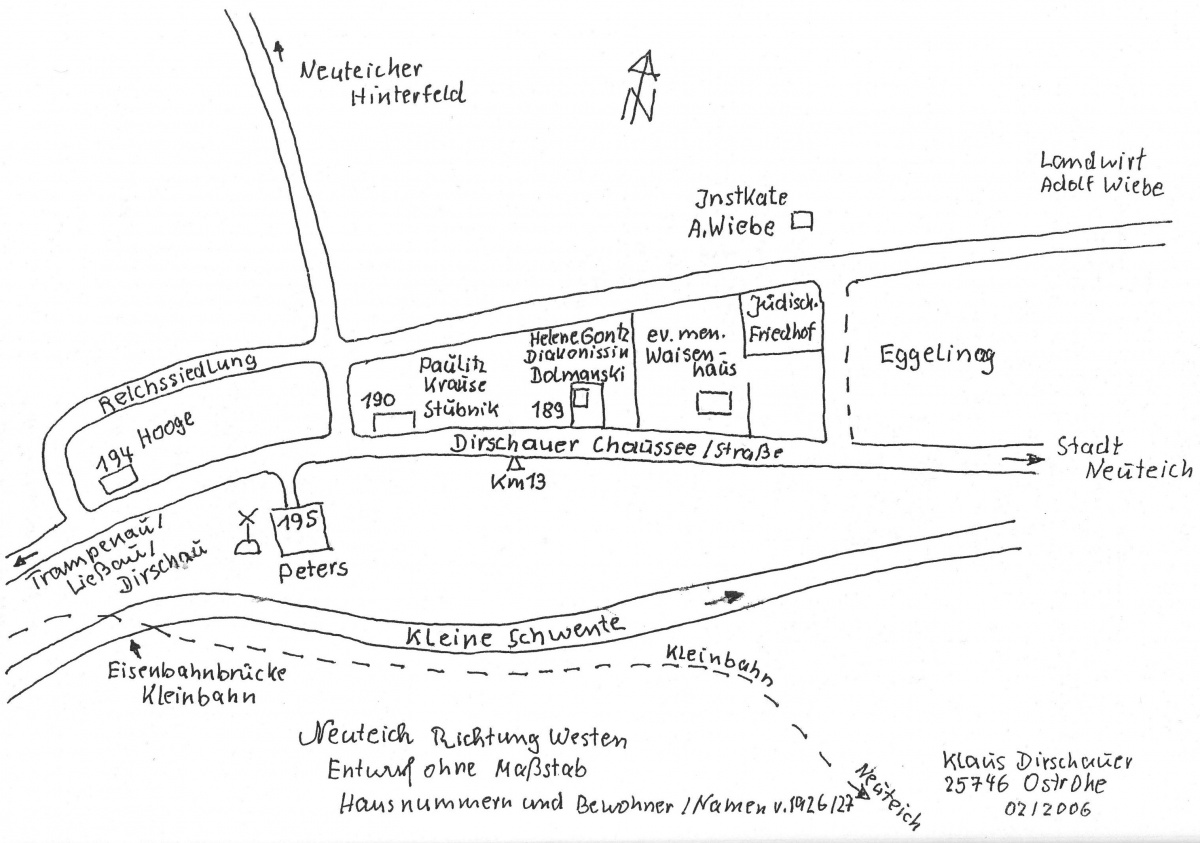 Neuteicher
Hinterfeld
N
Landwirt
Adolf Wiebe
Instkate
A. Wiebe
Jüdisch.
Friedhof
Helene Gontz
Diakonissin
Dolmanski
189
ev. men.
Waisen-
haus
Eggelinag
Reichssiedlung
Paulitz
Krause
Stübnik
190
Hooge
194
Dirschauer Chaussee / Straße
Km 13
Stadt
Neuteich
195
Peters
Trampenau /
Ließau /
Dirschau
Kleine Schwente
Kleinbahn
Eisenbahnbrücke
Kleinbahn
Neuteich Richtung Westen
Entwurf ohne Maßstab
Hausnummern und Bewohner / Namen v. 1926/27
Neuteich
Klaus Dirschauer
25746 Ostrohe
02/2006